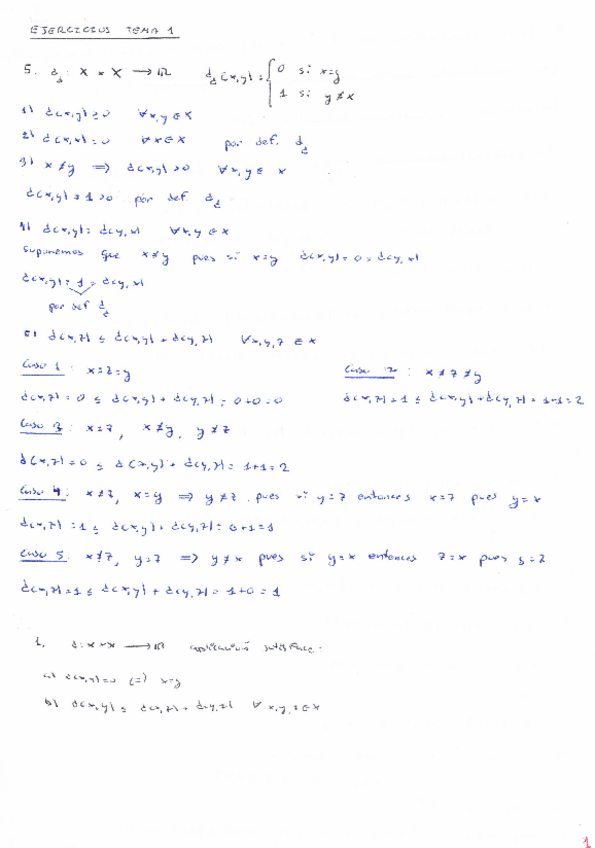 EJERCICIOS TEMA 1
5. d_d: X × X ⟶ ℝ d_d(x,y) = { 0 si x=y
1 si y≠x
1) d(x,y) ≥ 0 ∀x,y ∈ X
2) d(x,x) = 0 ∀x ∈ X por def. d_d
3) x≠y ⟹ d(x,y) > 0 ∀x,y ∈ X
d(x,y) = 1 > 0 por def d_d
4) d(x,y) = d(y,x) ∀x,y ∈ X
Suponemos que x≠y pues si x=y d(x,y) = 0 = d(y,x)
d(x,y) = 1 = d(y,x)
por def d_d
5) d(x,z) ≤ d(x,y) + d(y,z) ∀x,y,z ∈ X
Caso 1: x=z=y
d(x,z) = 0 ≤ d(x,y) + d(y,z) = 0+0=0
Caso 2: x≠z≠y
d(x,z) = 1 ≤ d(x,y) + d(y,z) = 1+1=2
Caso 3: x=z, x≠y, y≠z
d(x,z) = 0 ≤ d(x,y) + d(y,z) = 1+1=2
Caso 4: x≠z, x=y ⟹ y≠z pues si y=z entonces x=z pues y=x
d(x,z) = 1 ≤ d(x,y) + d(y,z) = 0+1=1
Caso 5: x≠z, y=z ⟹ y≠x pues si y=x entonces z=x pues y=z
d(x,z) = 1 ≤ d(x,y) + d(y,z) = 1+0=1
1. d: X×X ⟶ ℝ aplicación satisface:
a) d(x,y)=0 ⟺ x=y
b) d(x,y) ≤ d(x,z) + d(y,z) ∀ x,y,z ∈ X
1